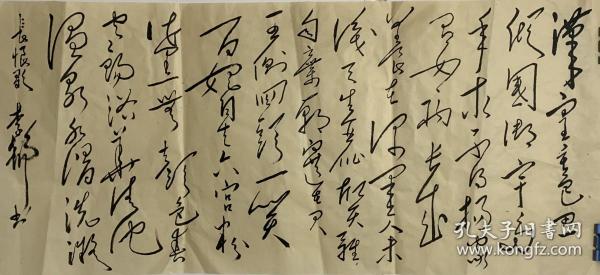 漢皇重色思
傾國御宇多
年求不得楊家
有女初長成
養在深閨人未
識天生麗質難
自棄一朝選在君
王側回頭一笑
百媚生六宮粉
黛無顏色春
寒賜浴華清池
溫泉水滑洗凝
長恨歌 李 书
孔夫子旧书网
www.kongfz.com